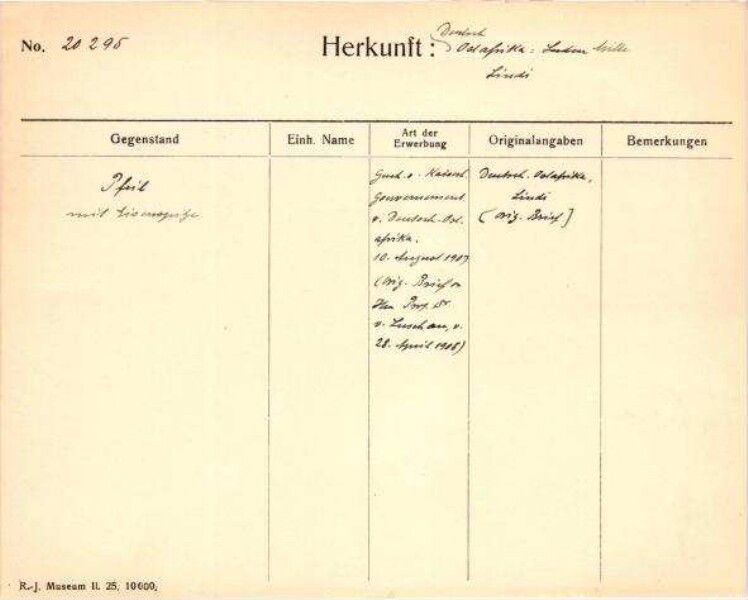 No. 20 295
Herkunft: Deutsch
Ostafrika:
Lindi
Gegenstand
Einh. Name
Art der
Erwerbung
Originalangaben
Bemerkungen
Pfeil
mit Eisenspitze
Gesch. v. Kaiserl.
Gouvernement
v. Deutsch-Ost-
afrika.
10. August 1907
(Orig. Brief v
Hrn Prof. Dr
v. Luschan, v.
28. April 1908)
Deutsch. Ostafrika,
Lindi
(Orig. Brief]
R.-J. Museum II. 25, 10000.